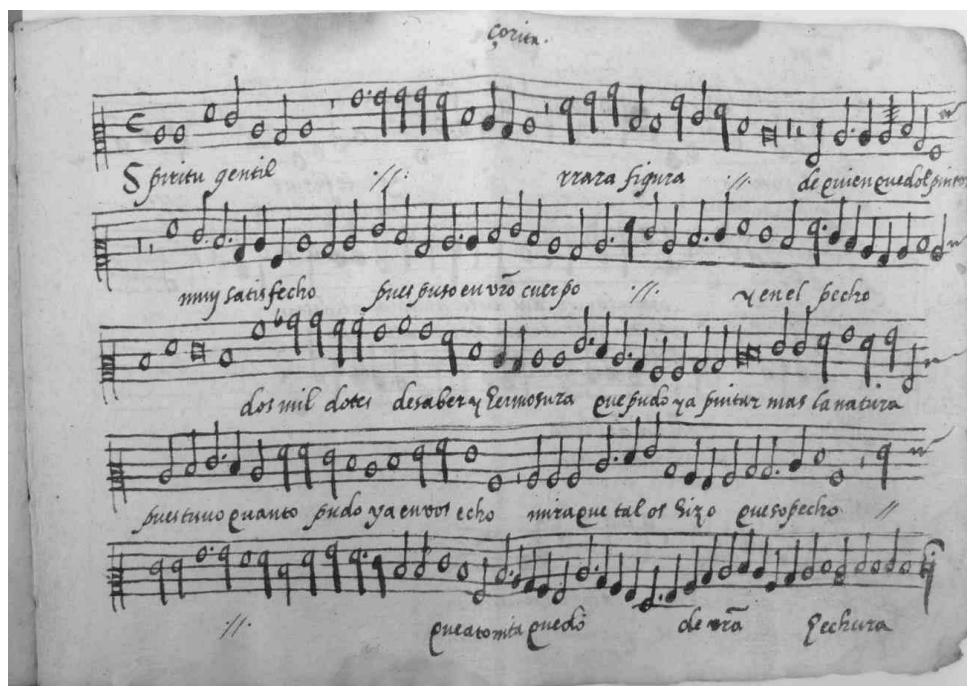 Çorita.
Spiritu gentil //. rrara figura //. de quien quedo el pintor
muy satisfecho pues puso en vro cuerpo //. y en el pecho
dos mil dotes de saber y hermosura que pudo ya pintar mas la natura
pues tuvo quanto pudo ya en vos echo mira que tal os hizo que sospecho //
//. que atonita quedo de vra hechura